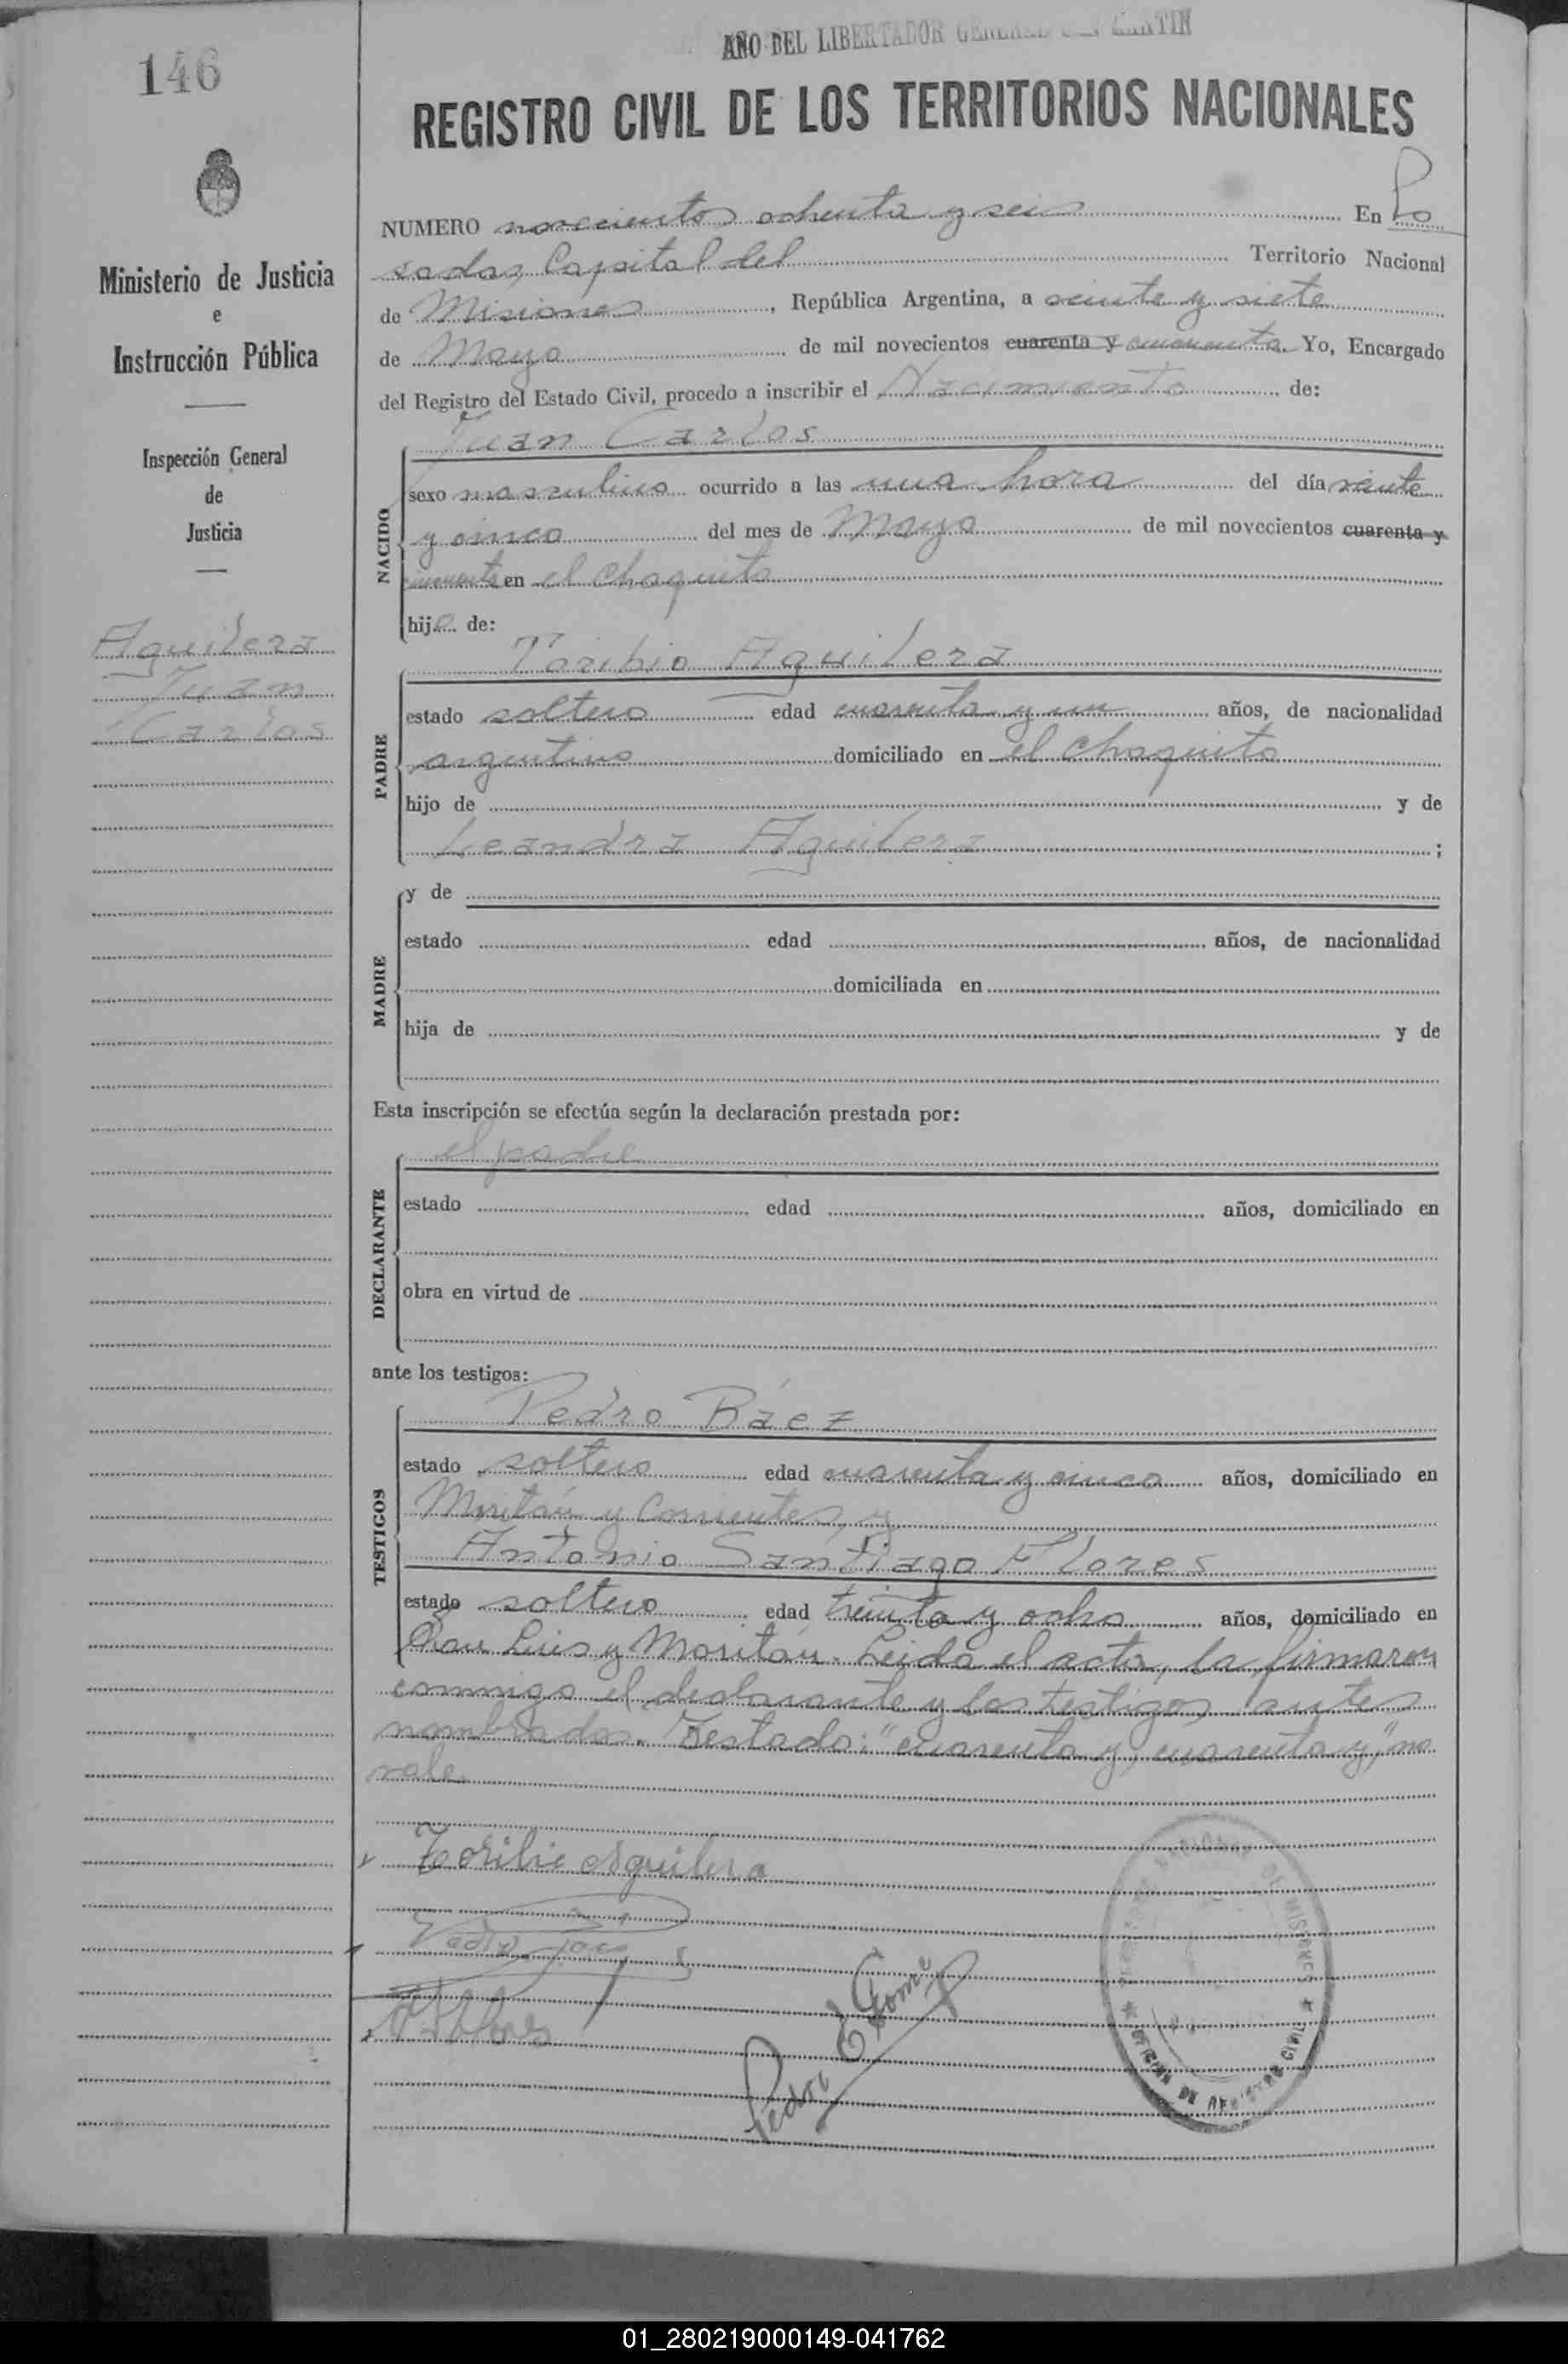 146
AÑO DEL LIBERTADOR GENERAL SAN MARTIN
REGISTRO CIVIL DE LOS TERRITORIOS NACIONALES
Ministerio de Justicia
e
Instrucción Pública
Inspección General
de
Justicia
Aguilera
Juan
Carlos
NUMERO novecientos ochenta y seis En Po
sadas, Capital del Territorio Nacional
de Misiones, República Argentina, a veinte y siete
de Mayo de mil novecientos cuarenta y cincuenta. Yo, Encargado
del Registro del Estado Civil, procedo a inscribir el Nacimiento de:
NACIDO
Juan Carlos
sexo masculino ocurrido a las una hora del día veinte
y cinco del mes de Mayo de mil novecientos cuarenta y
cincuenta en el Chaquito
hijo de:
PADRE
Toribio Aguilera
estado soltero edad cuarenta y un años, de nacionalidad
argentino domiciliado en el Chaquito
hijo de y de
Leandra Aguilera ;
MADRE
y de
estado edad años, de nacionalidad
domiciliada en
hija de y de
Esta inscripción se efectúa según la declaración prestada por:
DECLARANTE
el padre
estado edad años, domiciliado en
obra en virtud de
ante los testigos:
TESTIGOS
Pedro Báez
estado soltero edad cuarenta y cinco años, domiciliado en
Moritán y Corrientes, y
Antonio Santiago Flores
estado soltero edad treinta y ocho años, domiciliado en
San Luis y Moritán. Leida el acta, la firmaron
conmigo el declarante y los testigos antes
nombrados. Testado: "cuarenta y, cuarenta y," no
vale.
Toribio Aguilera
Pedro
Flores
Pedro E Gome
DE MISIONES
OFICINA DE REGISTRO CIVIL
01_280219000149-041762